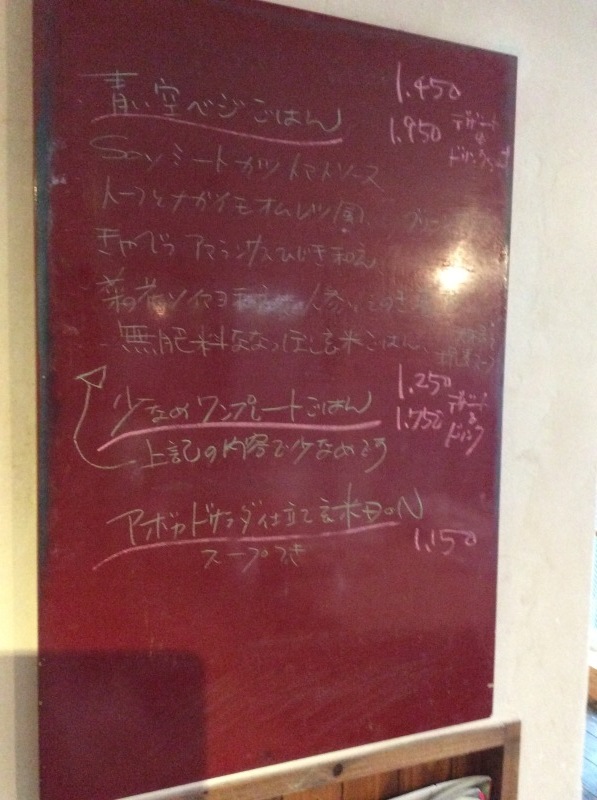 青い空ベジごはん 1.450
1.950 デザート&ドリンク
Soyミートカツトマトソース
トーフとナガイモオムレツ風
きゃべつ アマランサスひじき和え
菜の花ソイマヨ和え 人参
無肥料ななつぼし玄米ごはん、
少なめワンプレートごはん 1.250
1.750 デザート&ドリンク
上記の内容で少なめです
アボカドサラダ仕立て玄米DON 1.150
スープつき